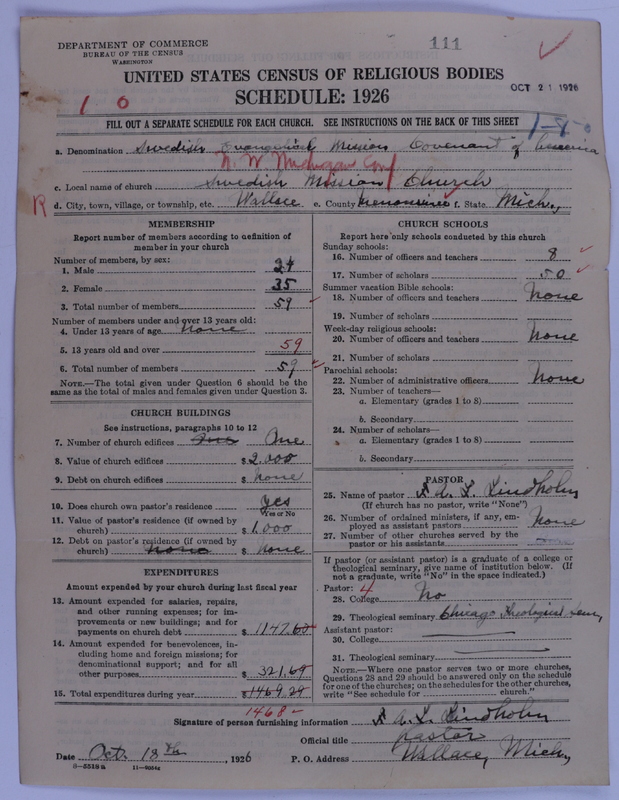 DEPARTMENT OF COMMERCE
BUREAU OF THE CENSUS
WASHINGTON
111
UNITED STATES CENSUS OF RELIGIOUS BODIES
OCT 21 1926
SCHEDULE: 1926
1 0
FILL OUT A SEPARATE SCHEDULE FOR EACH CHURCH. SEE INSTRUCTIONS ON THE BACK OF THIS SHEET
a. Denomination Swedish Evangelical Mission Covenant of America
N. W. Michigan Conf
c. Local name of church Swedish Mission Church
R
d. City, town, village, or township, etc. Wallace e. County Menominee f. State Mich,
MEMBERSHIP
Report number of members according to definition of member in your church
Number of members, by sex:
1. Male 24
2. Female 35
3. Total number of members 59
Number of members under and over 13 years old:
4. Under 13 years of age None
5. 13 years old and over 59
6. Total number of members 59
NOTE.—The total given under Question 6 should be the same as the total of males and females given under Question 3.
CHURCH BUILDINGS
See instructions, paragraphs 10 to 12
7. Number of church edifices One One
8. Value of church edifices $2.000
9. Debt on church edifices $ None
10. Does church own pastor's residence yes
Yes or No
11. Value of pastor's residence (if owned by church) $ 1.000
12. Debt on pastor's residence (if owned by church) None $ None
EXPENDITURES
Amount expended by your church during last fiscal year
13. Amount expended for salaries, repairs, and other running expenses; for improvements or new buildings; and for payments on church debt $ 1147.60
14. Amount expended for benevolences, including home and foreign missions; for denominational support; and for all other purposes $ 321.69
15. Total expenditures during year $1469.29
1468
CHURCH SCHOOLS
Report here only schools conducted by this church
Sunday schools:
16. Number of officers and teachers 8
17. Number of scholars 50
Summer vacation Bible schools:
18. Number of officers and teachers None
19. Number of scholars
Week-day religious schools:
20. Number of officers and teachers None
21. Number of scholars
Parochial schools:
22. Number of administrative officers None
23. Number of teachers—
a. Elementary (grades 1 to 8)
b. Secondary
24. Number of scholars—
a. Elementary (grades 1 to 8)
b. Secondary
PASTOR
25. Name of pastor A. L. Lindholm
(If church has no pastor, write "None")
26. Number of ordained ministers, if any, employed as assistant pastors None
27. Number of other churches served by the pastor or his assistants
If pastor (or assistant pastor) is a graduate of a college or theological seminary, give name of institution below. (If not a graduate, write "No" in the space indicated.)
Pastor: 4
28. College No
29. Theological seminary Chicago Theological Sem,
Assistant pastor:
30. College
31. Theological seminary
NOTE.—Where one pastor serves two or more churches, Questions 28 and 29 should be answered only on the schedule for one of the churches; on the schedules for the other churches, write "See schedule for church."
Signature of person furnishing information A. L. Lindholm
Official title pastor
Date Oct. 18th, 1926 P. O. Address Wallace, Mich,
8—5518a 11—9054c